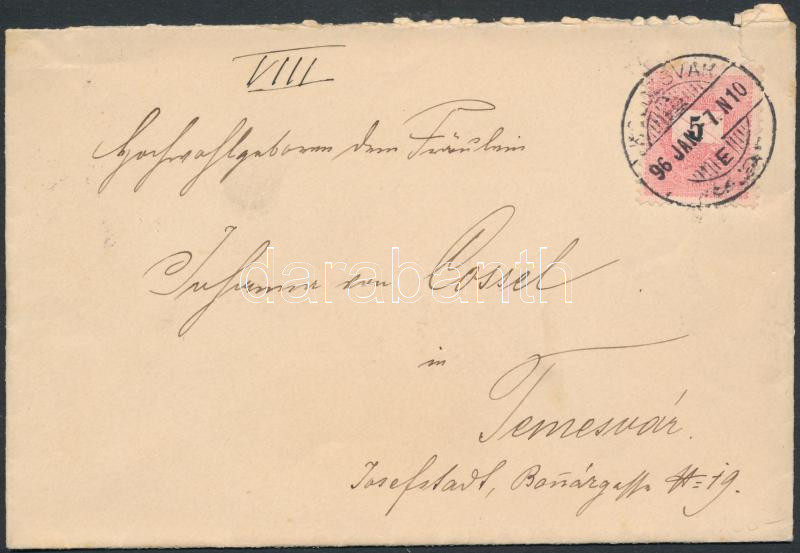 VIII
5
96 JAN 7. N10
E
Hochwohlgeboren dem Fräulein
Johanna von Cossel
darabanth
in
Temesvár.
Josefstadt, Bonnárgasse № 19.